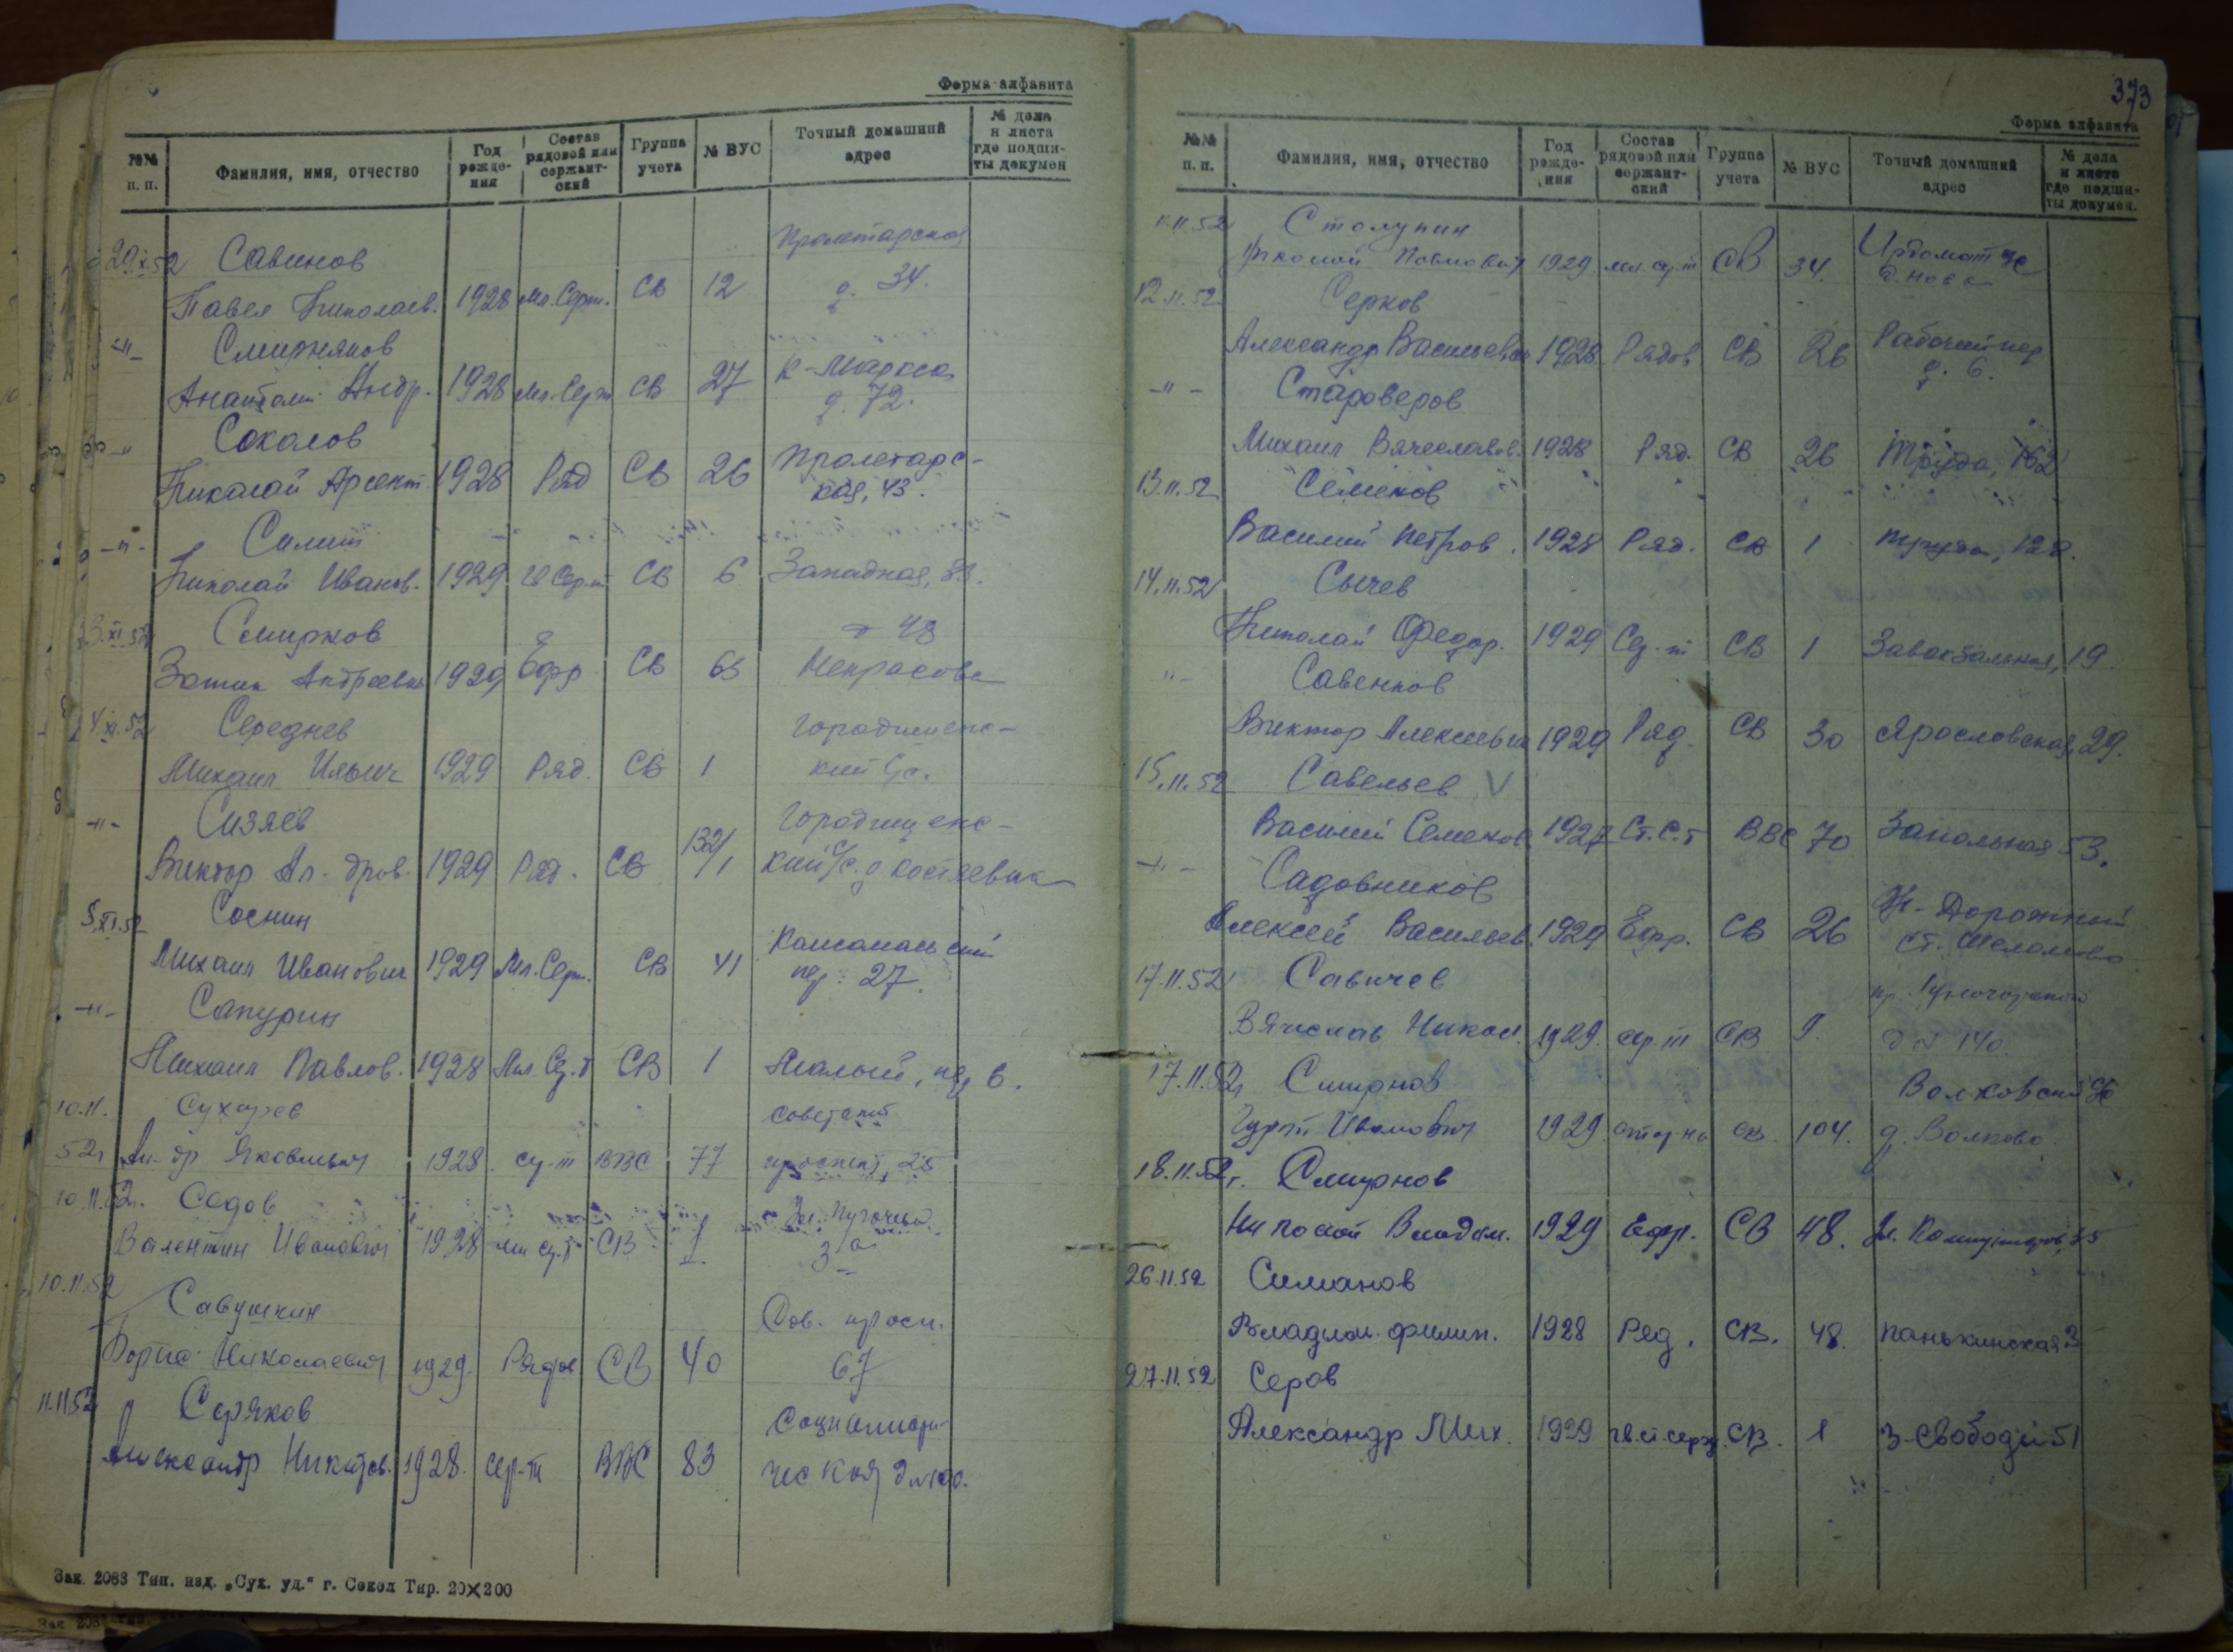 Форма алфавита
№№ п. п. Фамилия, имя, отчество Год рождения Состав рядовой или сержантский Группа учета № ВУС Точный домашний адрес № дела и листа где подшиты докумен
29.X.52 Савинов Пролетарская
Павел Николаев. 1928 Мл. Серж. СВ 12 д. 34.
-"- Смирняков К-Маркса
Анатолий Андр. 1928 Мл. Серж СВ 27 д. 72.
-"- Соколов Пролетарс-
Николай Арсент. 1928 Ряд СВ 26 кая, 43.
-"-
Николай Иванов. 1929 СВ 6 Западная,
3.XI.52 Смирнов 48
Андреевич 1929 Ефр СВ 65 Некрасова
4.XI.52 Середнев Городищенс-
Михаил Ильич 1929 Ряд. СВ 1 кий с/с.
-"- Сизяев Городищенс-
Виктор Ал-дров. 1929 Ряд. СВ 132/1 кий с/с. д.
5.XI.52 Соснин
Михаил Иванович 1929 Мл. Серж. СВ 41 пер. 27.
-"- Сапурин
Михаил Павлов. 1928 Мл. Сер-т СВ 1 Малый, пер 6.
10.11. Сухарев Советский
52г Ал-др Яковлевич 1928. сер-т ВВС 77 проспект, 25
10.11.52г. Седов
Валентин Иванович 1928 мл сер-т СВ 1. 3а
10.11.52 Савушкин Сов. просп.
Борис Николаевич 1929. Рядов СВ 40 67
11.11.52 Серяков Социалисти-
Александр Никитов. 1928. сер-т ВВС 83 ческая
Зак. 2083 Тип. изд. „Сух. уд.“ г. Сокол Тир. 20×200
373
Форма алфавита
№№ п. п. Фамилия, имя, отчество Год рождения Состав рядовой или сержантский Группа учета № ВУС Точный домашний адрес № дела и листа где подшиты докумен.
11.11.52 Столупин
Николай Павлович 1929 мл. сер-т СВ 34.
12.11.52 Серков Рабочий пер
Александр Васильевич 1928 Рядов СВ 26 д. 6.
-"- Староверов
Михаил Вячеславов. 1928 Ряд. СВ 26 Труда, 162
13.11.52 Семенов
Василий Петров. 1928 Ряд. СВ 1 Труда,
14.11.52 Сычев
Николай Федор. 1929 Сер-т СВ 1 Завокзальная, 19.
-"- Савенков
Виктор Алексеевич 1929 Ряд. СВ 30 Ярославская, 29.
15.11.52 Савельев V
Василий Семенов. 1927 Ст. С-т ВВС 70 Запольная 53.
-"- Садовников Ж-Дорожный
Алексей Васильев. 1929 Ефр. СВ 26 ст. Шеломово
17.11.52 Савичев
Вячеслав Никол. 1929. сер-т СВ 9. д № 140.
17.11.52г Смирнов Волковский с/с
Иванович 1929. СВ. 104. д. Волково.
18.11.52г. Смирнов
Николай Владим. 1929 Ефр. СВ 48.
26.11.52 Симанов
Владим. Филип. 1928 Ряд. СВ. 48. Панькинская 3
27.11.52 Серов
Александр Мих. 1929 СВ. 1 3-Свободы 51